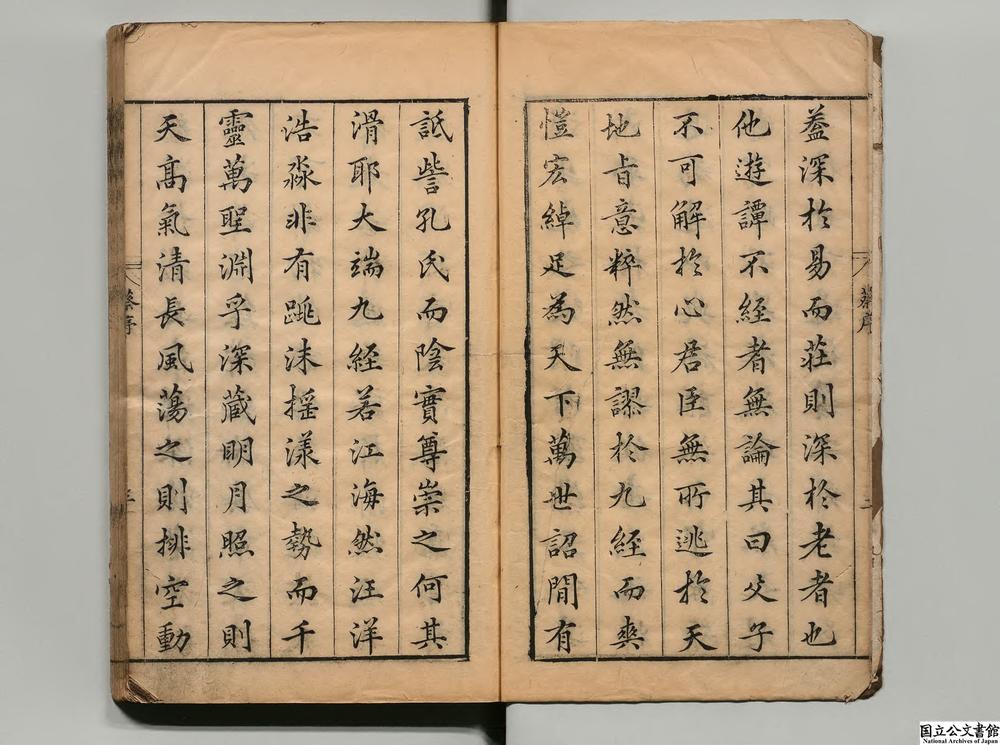 蓋深於易而莊則深於老者也
他遊譚不經者無論其曰父子
不可解於心君臣無所逃於天
地旨意粹然無謬於九經而爽
愷宏綽足為天下萬世詔間有
蔡序
二
詆訾孔氏而陰實尊崇之何其
滑耶大端九經若江海然汪洋
浩淼非有跳沫搖漾之勢而千
靈萬聖淵孚深藏明月照之則
天高氣清長風蕩之則排空動
蔡序
三
国立公文書館
National Archives of Japan